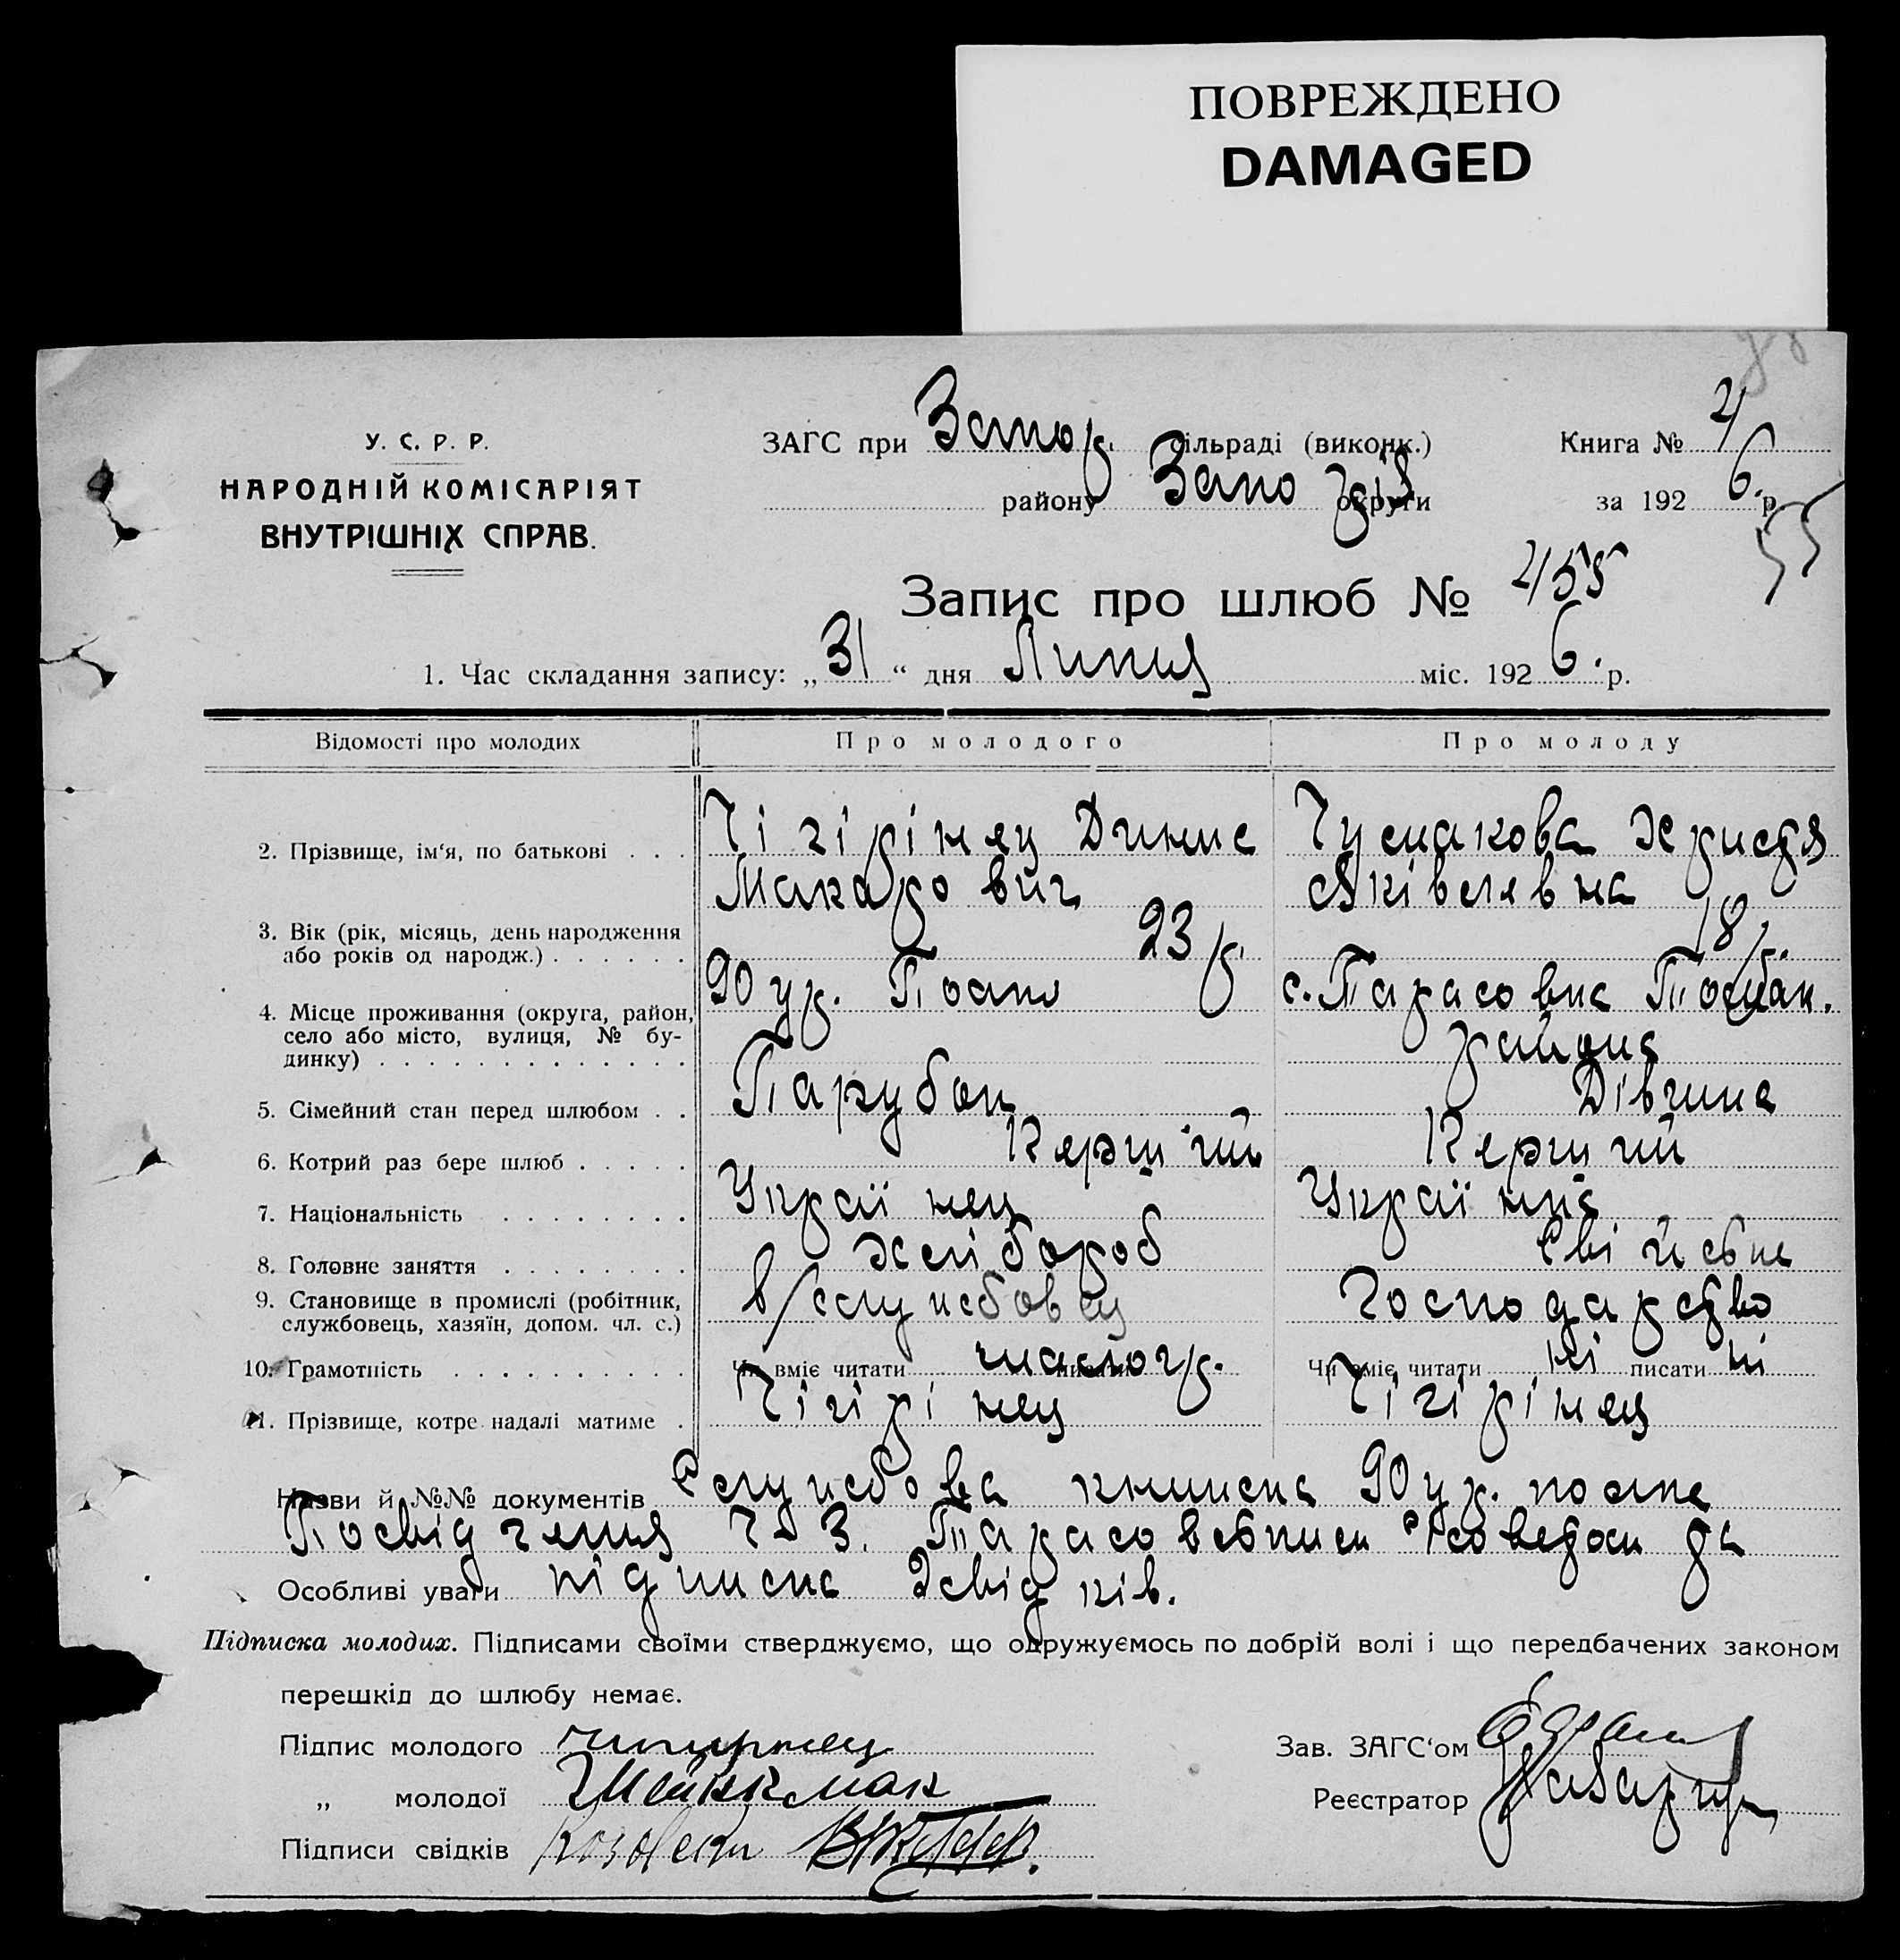 ПОВРЕЖДЕНО
DAMAGED
У. С. Р. Р.
НАРОДНІЙ КОМІСАРІЯТ
ВНУТРІШНІХ СПРАВ.
ЗАГС при Запор. сільраді (виконк.) Книга № 4
району Запоріз округи за 192 6. р.
55
Запис про шлюб № 455
1. Час складання запису: „ 31 “ дня Липня міс. 192 6. р.
Відомості про молодих Про молодого Про молоду
2. Прізвище, ім‘я, по батькові . . . Чігірінец Динис Чумакова Христя
Макарович Яківлевна
3. Вік (рік, місяць, день народження 23 р. 18 р.
або років од народж.) . . . . . .
4. Місце проживання (округа, район, 90 ур. Полка с. Тарасовка
село або місто, вулиця, № бу- района
динку) . . . . . . . . . . . . .
5. Сімейний стан перед шлюбом . . Парубок Дівчина
6. Котрий раз бере шлюб . . . . . Первий Первий
7. Національність . . . . . . . . Українец Українка
8. Головне заняття . . . . . . . . Хлібороб Сві йське
9. Становище в промислі (робітник, в/службовец Господарство
службовець, хазяїн, допом. чл. с.)
10. Грамотність . . . . . . . . . . Чи вміє читати малогр. писати Чи вміє читати ні писати ні
11. Прізвище, котре надалі матиме . Чігірінец Чігірінец
Назви й №№ документів Службова книжка 90 ур. полка
Посвідчення Ч 3. Тарасовським с/советом та
Особливі уваги підписка 2 свідків.
Підписка молодих. Підписами своїми стверджуємо, що одружуємось по добрій волі і що передбачених законом
перешкід до шлюбу немає.
Підпис молодого Чигирнец Зав. ЗАГС‘ом
„ молодої Реєстратор
Підписи свідків